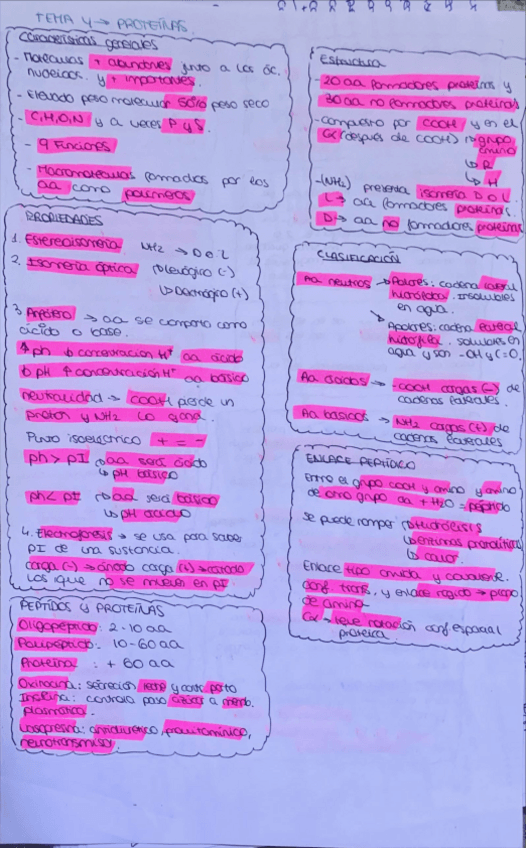 TEMA 4 → PROTEÍNAS
Características generales
- Moléculas + abundantes junto a los ác.
nucleicos. y + importantes.
- Elevado peso molecular 50% peso seco
- C,H,O,N y a veces P y S.
- 9 Funciones
- Macromoléculas formadas por los
aa como polímeros
PROPIEDADES
1. Estereoisomería NH2 → D o L
2. Isomería óptica → Levógiro (-)
↳ Dextrógiro (+)
3. Anfótero → aa se comporta como
ácido o base.
↑ ph ↓ concentración H+ aa ácido
↓ pH ↑ concentración H+ aa básico
neutralidad → COOH pierde un
protón y NH2 lo gana.
Punto isoeléctrico + = -
ph > pI → aa será ácido
↳ pH básico
ph < pI → aa será básico
↳ pH ácido
4. Electroforesis → se usa para saber
pI de una sustancia.
carga (-) → ánodo carga (+) → cátodo
Los que no se mueven en pI
PEPTIDOS y PROTEÍNAS
Oligopéptido: 2-10 aa
Polipéptido: 10-60 aa
Proteína : + 60 aa
Oxitocina: secreción leche y contr. parto
Insulina: controla paso azúcar a memb.
plasmática.
Vasopresina: antidiurético,
neurotransmisor.
Estructura
- 20 aa formadores proteínas y
30 aa no formadores proteínas
- compuesto por COOH y en el
Cα (después de COOH) → grupo
amino
↳ R
↳ H
- (NH2) presenta isomería D o L.
L → aa formadores proteínas.
D → aa no formadores proteínas
CLASIFICACIÓN
Aa neutros → Polares: cadena lateral
hidrófoba. Insolubles
en agua.
↘ Apolares: cadena lateral
hidrófila. solubles en
agua y son -OH y C=O.
Aa ácidos → -COOH cargas (-) de
cadenas laterales.
Aa básicos → NH2 cargas (+) de
cadenas laterales
ENLACE PEPTÍDICO
Entre el grupo COOH y amino y amino
de otro grupo aa + H2O = péptido
Se puede romper → hidrólisis
↳ enzimas proteolíticas
↳ calor.
Enlace tipo amida y covalente.
Conf. trans, y enlace rígido →
de amina
Cα → leve rotación conf. espacial
proteica.